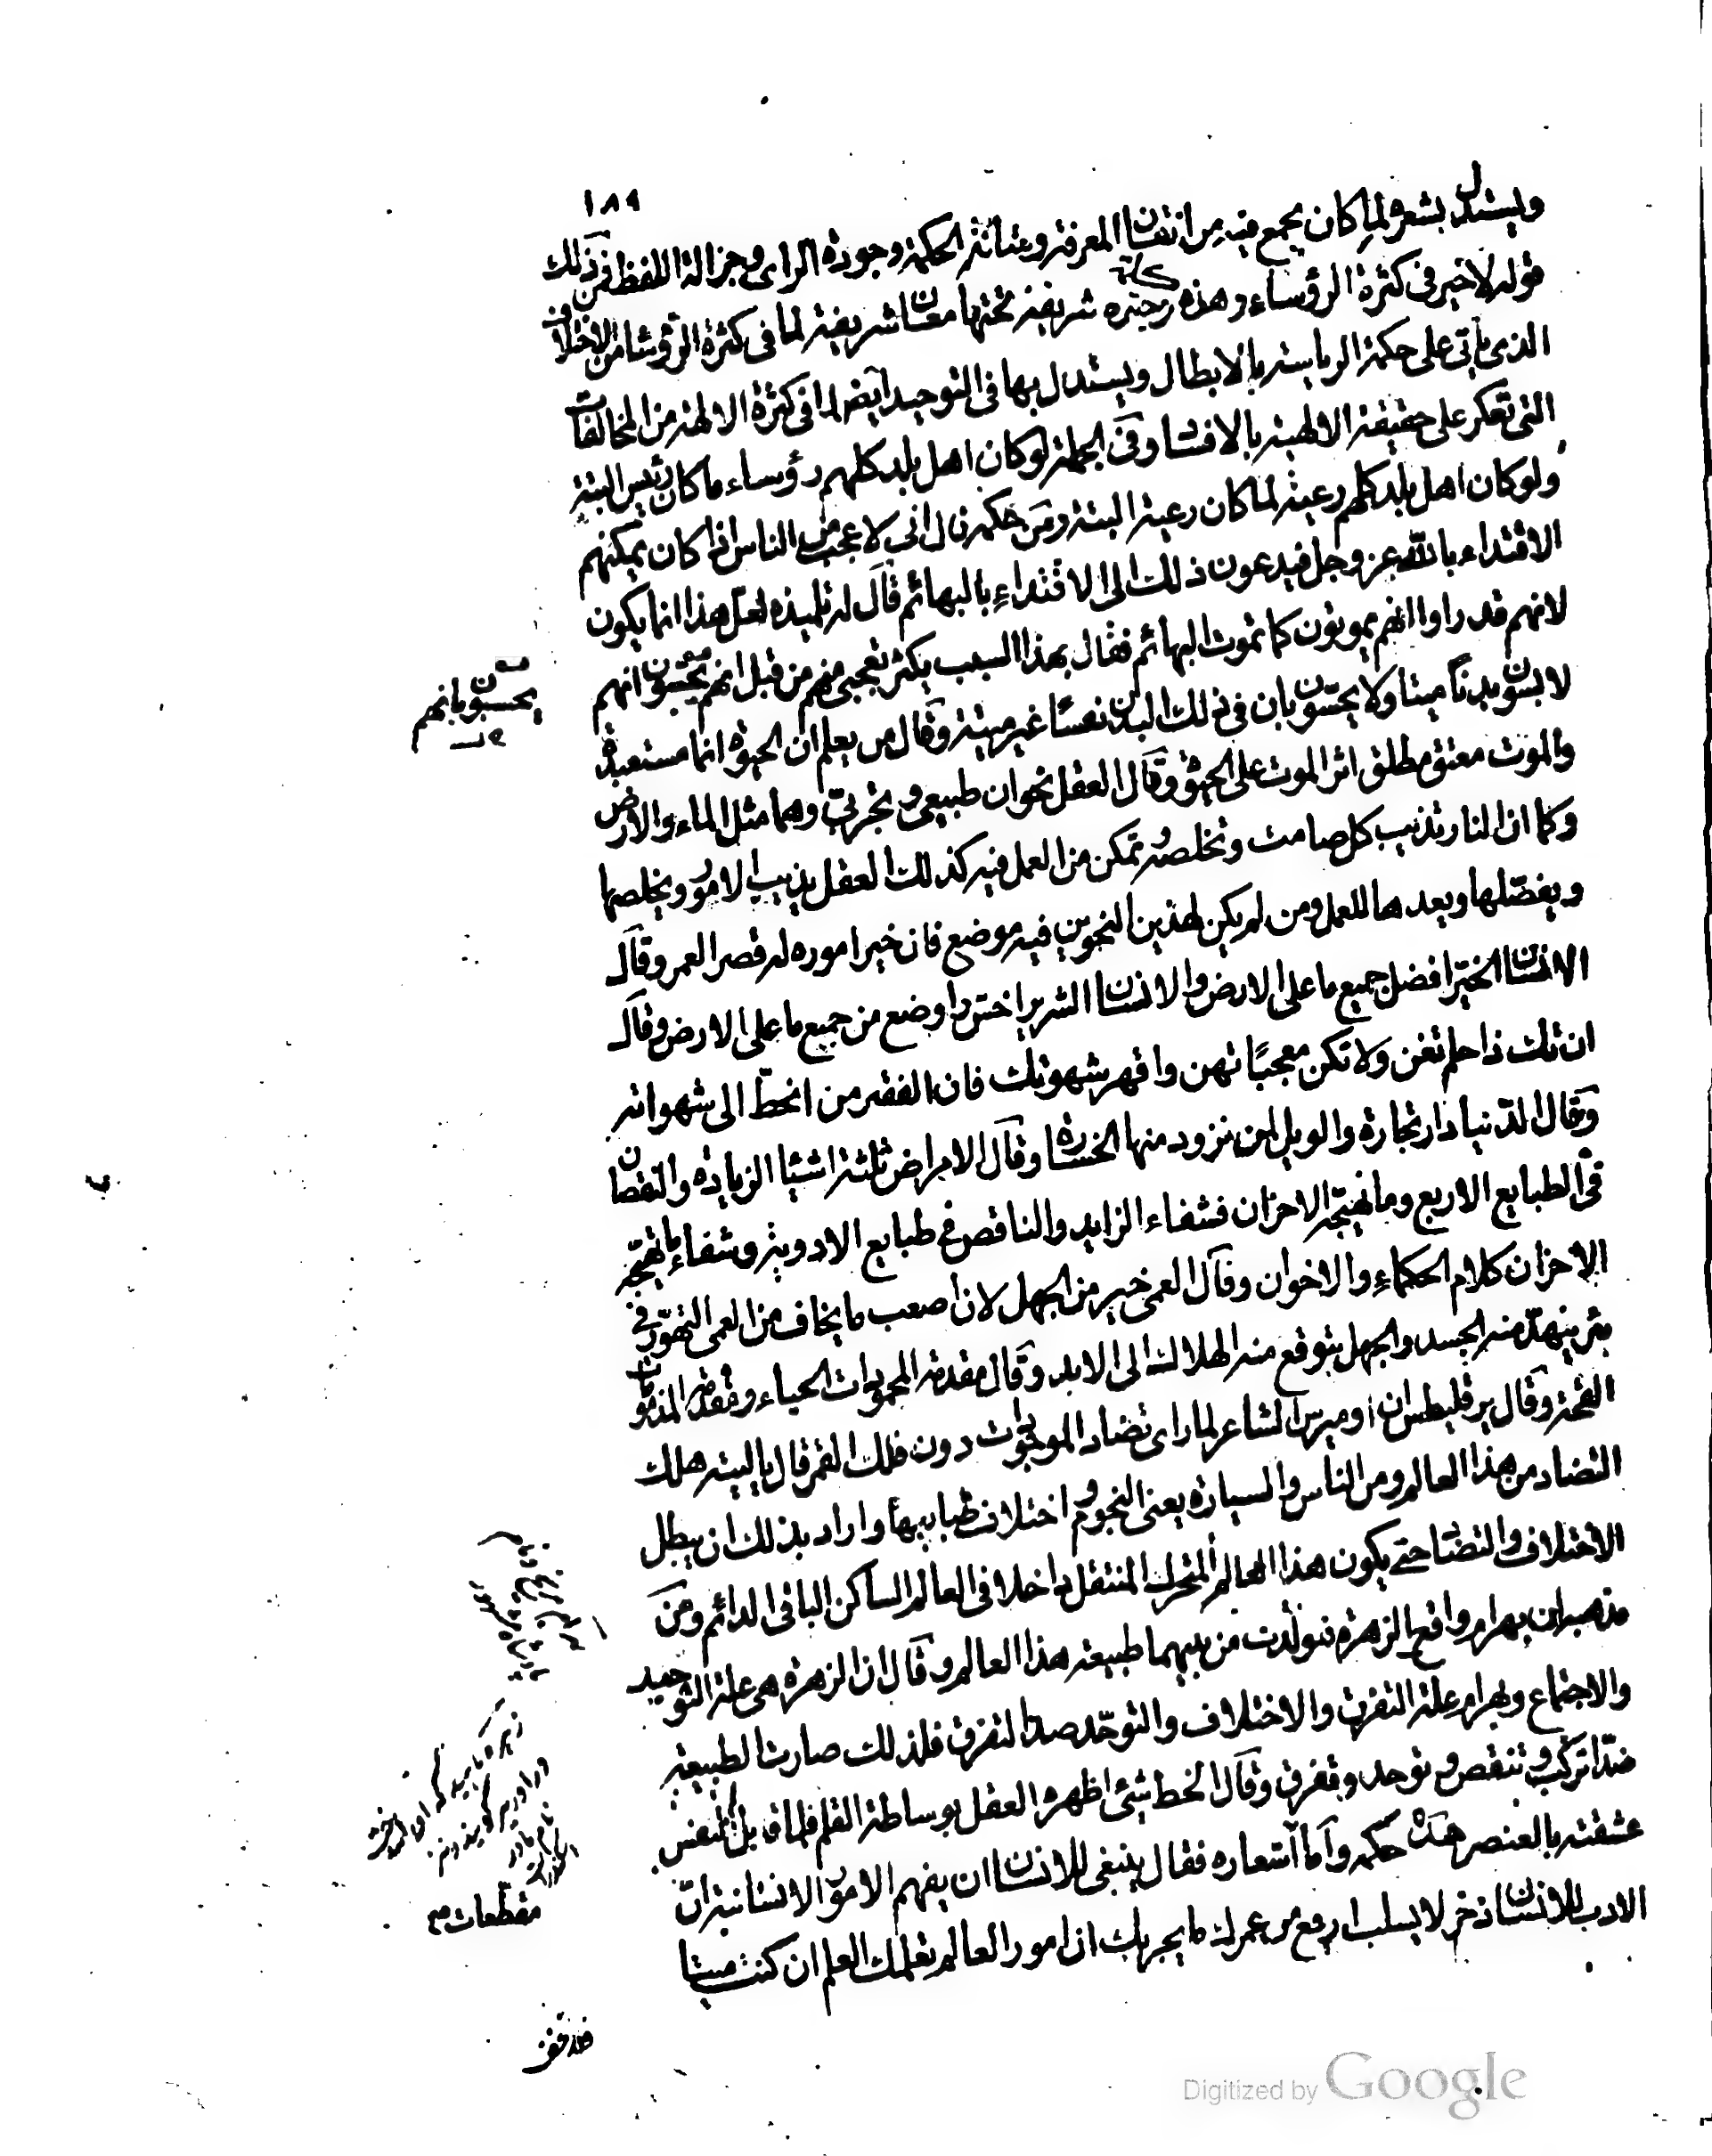 ١٨٩
ويستدل بشعره لما كان يجمع فيه من اتقان المعرفة ومتانة الحكمة وجودة الراى وجزالة اللفظ فمن ذلك
قوله لا خير فى كثرة الرؤساء وهذه كلمة وجيزه شريفة تحتها معان شريفة لما فى كثرة الرؤسا من الاختلاف
الذى ياتى على حكمة الرياسة بالابطال ويستدل بها فى التوحيد ايضا لما فى كثرة الالهة من المخالفات
التى تعكر على حقيقة الالهية بالافساد وفى الجملة لو كان اهل بلد كلهم رؤساء ما كان رئيس البتة
ولو كان اهل بلد كلهم رعية لما كان رعية البتة ومن حكمه قال انى لاعجب من الناس اذا كان يمكنهم
الاقتداء بالله عز وجل فيدعون ذلك الى الاقتداء بالبهائم قال له تلميذه لعل هذا انما يكون
لانهم قد راوا انهم يموتون كما تموت البهائم فقال بهذا السبب يكثر تعجبى منهم من قبل انهم يحسون انهم
لابسون بدنا ميتا ولا يحسون بان فى ذلك البدن نفسا غير ميتة وقال من يعلم ان الحيوة انما مستعبدة
والموت معتق مطلق اثر الموت على الحيوة وقال العقل نحوان طبيعى وتجربى وهما مثل الماء والارض
وكما ان النار تذيب كل صامت وتخلصه وتمكن من العمل فيه كذلك العقل يذيب الامور ويخلصها
ويفصلها ويعدها للعمل ومن لم يكن لهذين النحوين فيه موضع فان خير اموره له قصر العمر وقال
الانسان الخير افضل جميع ما على الارض والانسان الشرير اخس واوضع من جميع ما على الارض وقال
ان تلك ذا حلم تغن ولا تكن معجبا تهن واقهر شهوتك فان الفقير من انحط الى شهواته
وقال الدنيا دار تجارة والويل لمن تزود منها الخسارة وقال الامراض ثلثة اشيا الزيادة والنقصان
فى الطبايع الاربع وما تهيجه الاحزان فشفاء الزايد والناقص فى طبايع الادوية وشفاء ما تهيجه
الاحزان كلام الحكماء والاخوان وقال العمى خير من الجهل لان اصعب ما يخاف من العمى التهور فى
بئر ينهد منه الجسد والجهل يتوقع منه الهلاك الى الابد وقال مقدمة المحمودات الحياء ومقدمة المذمومات
القحة وقال يرقليطس ان اوميرس الشاعر لما راى تضاد الموجودات دون فلك القمر قال يا ليته هلك
التضاد من هذا العالم ومن الناس والسيارة يعنى النجوم واختلاف طبايعها واراد بذلك ان يبطل
الاختلاف والتضاد حتى يكون هذا العالم المتحرك المنتقل داخلا فى العالم الساكن الباقى الدائم ومن
مذهبه ان بهرام واقع الزهرة فتولدت من بينهما طبيعة هذا العالم وقال ان الزهرة هى علة التوحيد
والاجتماع وبهرام علة التفرق والاختلاف والتوحد ضد التفرق فلذلك صارت الطبيعة
ضدا تركب وتنقص وتوحد وتفرق وقال الخط شئ اظهره العقل بوساطة القلم فلما قابل النفس
عشقته بالعنصر هذه حكمه واما اشعاره فقال ينبغى للانسان ان يفهم الامور الانسانية ان
الادب للانسان ذخر لا يسلب ارفع من عمرك ما يحزنك ان امور العالم تعلمك العلم ان كنت ميتا
يحسبون بانهم
مقطعات مع